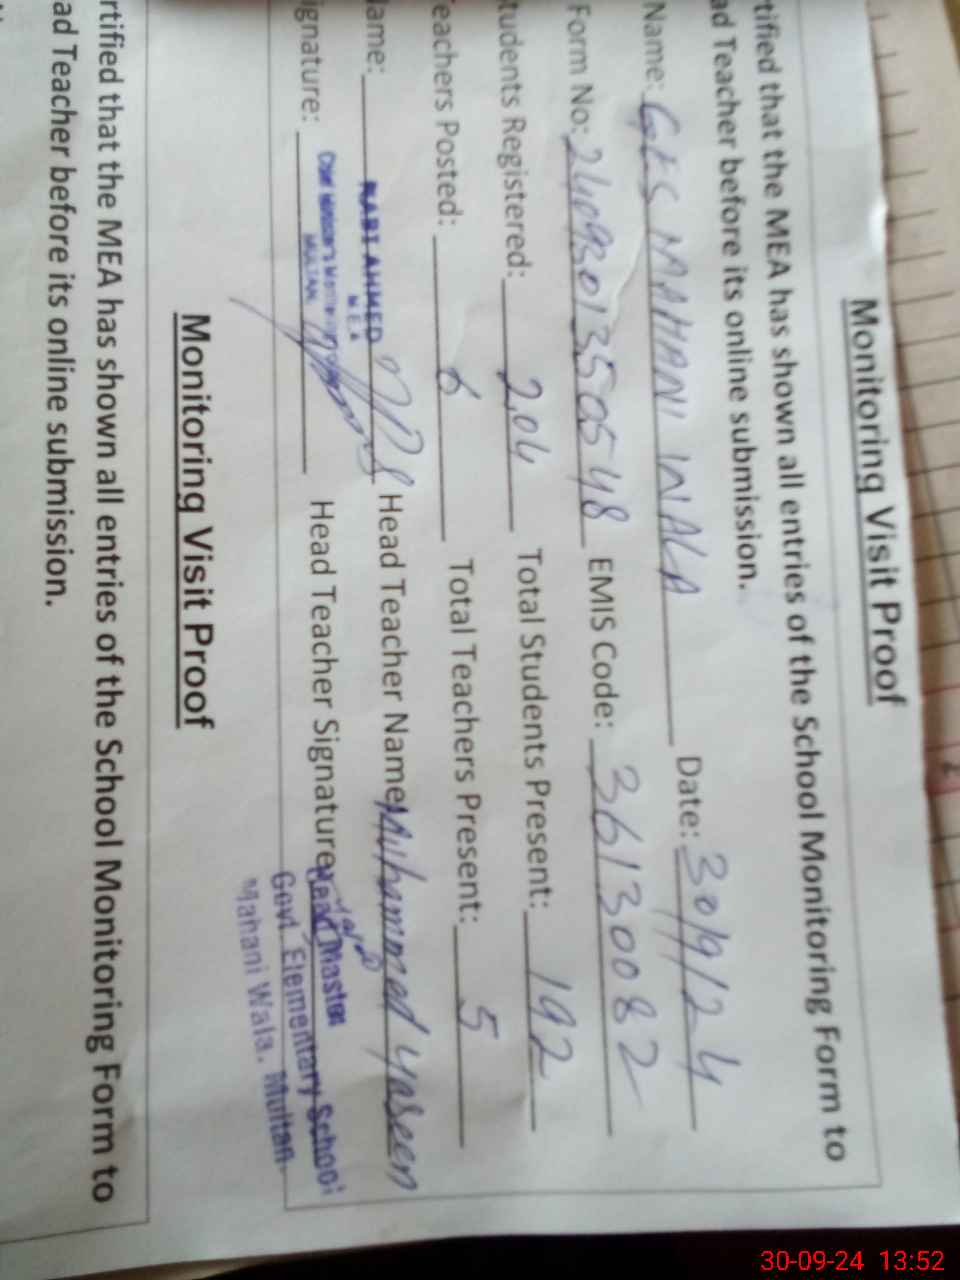 Monitoring Visit Proof
rtified that the MEA has shown all entries of the School Monitoring Form to
ad Teacher before its online submission.
Name: GES MAHANI WALA Date: 30/9/24
Form No: 2409301350548 EMIS Code: 36130082
tudents Registered: 204 Total Students Present: 192
eachers Posted: 6 Total Teachers Present: 5
ame: NABI AHMED Head Teacher Name Muhammed Yaseen
M.E.A
ignature: Head Teacher Signature Head Master
MULTAN
Govt. Elementary School
Mahani Wala, Multan
Monitoring Visit Proof
rtified that the MEA has shown all entries of the School Monitoring Form to
ad Teacher before its online submission.
30-09-24 13:52